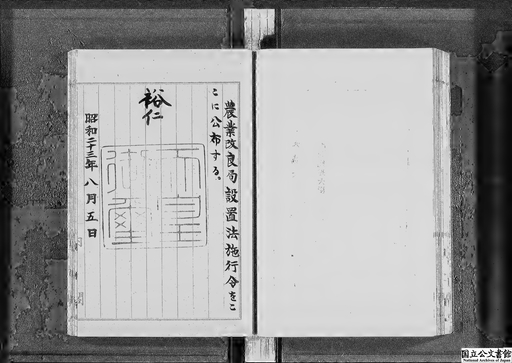 農業改良局設置法施行令をこ
こに公布する。
裕仁
天皇
御璽
昭和二十三年八月五日
国立公文書館
National Archives of Japan